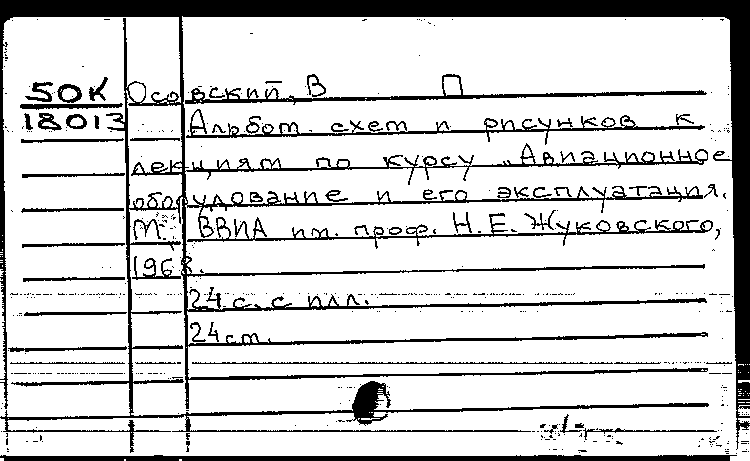 50К Осовский, В П
18013 Альбом схем и рисунков к
лекциям по курсу „Авиационное
оборудование и его эксплуатация.
М., ВВИА им. проф. Н.Е. Жуковского,
1968.
24 с. с илл.
24 см.